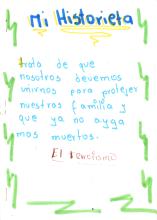 Mi Historieta
trata de que
nosotros devemos
unirnos para protejer
nuestras familia y
que ya no ayga
mas muertos.
El terrorismo